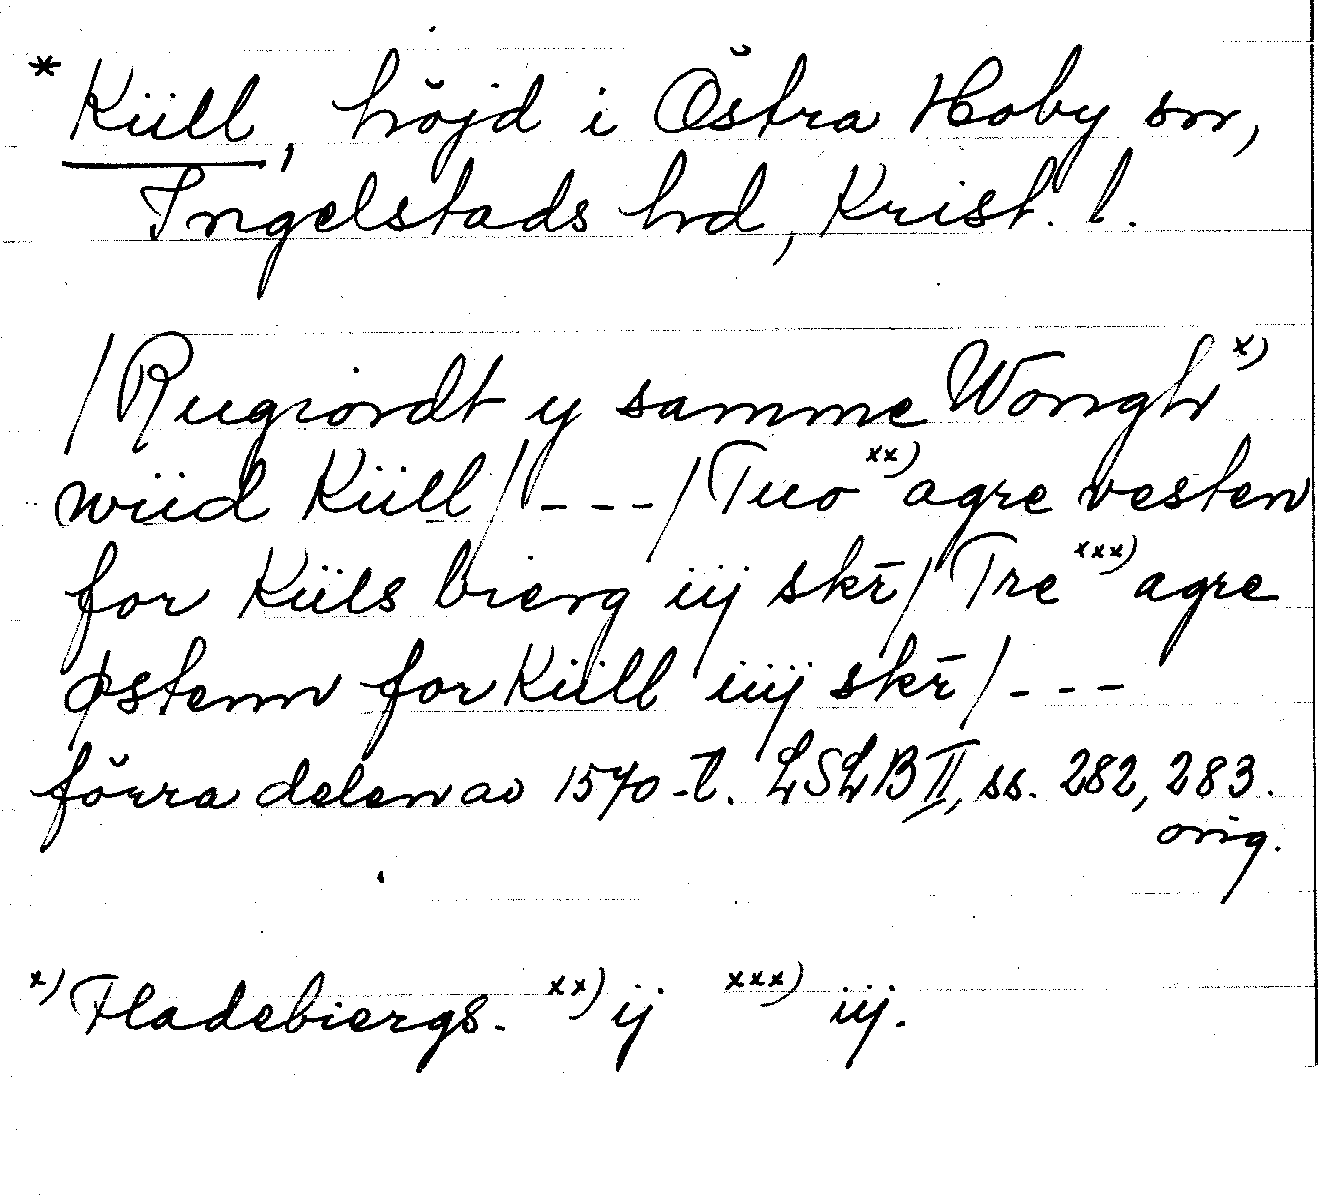 * Küll, höjd i Östra Hoby sn,
Ingelstads hd, Krist. l.
/Rugiordt y samme Wongh x)
wiid Küll/ - - - / Tuo xx) agre vesten
for Küls bierg iij skr̄/ Tre xxx) agre
østenn for Küll iiij skr̄/ - - -
förra delen av 1570-t. LSLB II, ss. 282, 283.
orig.
x) Fladebiergs- xx) ij xxx) iij.